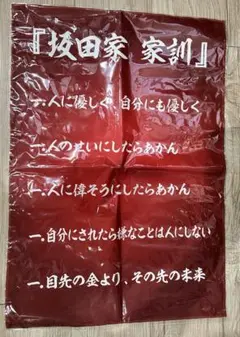 『坂田家 家訓』
一.人に優しく 自分にも優しく
一.人のせいにしたらあかん
一.人に偉そうにしたらあかん
一.自分にされたら嫌なことは人にしない
一.目先の金より、その先の未来